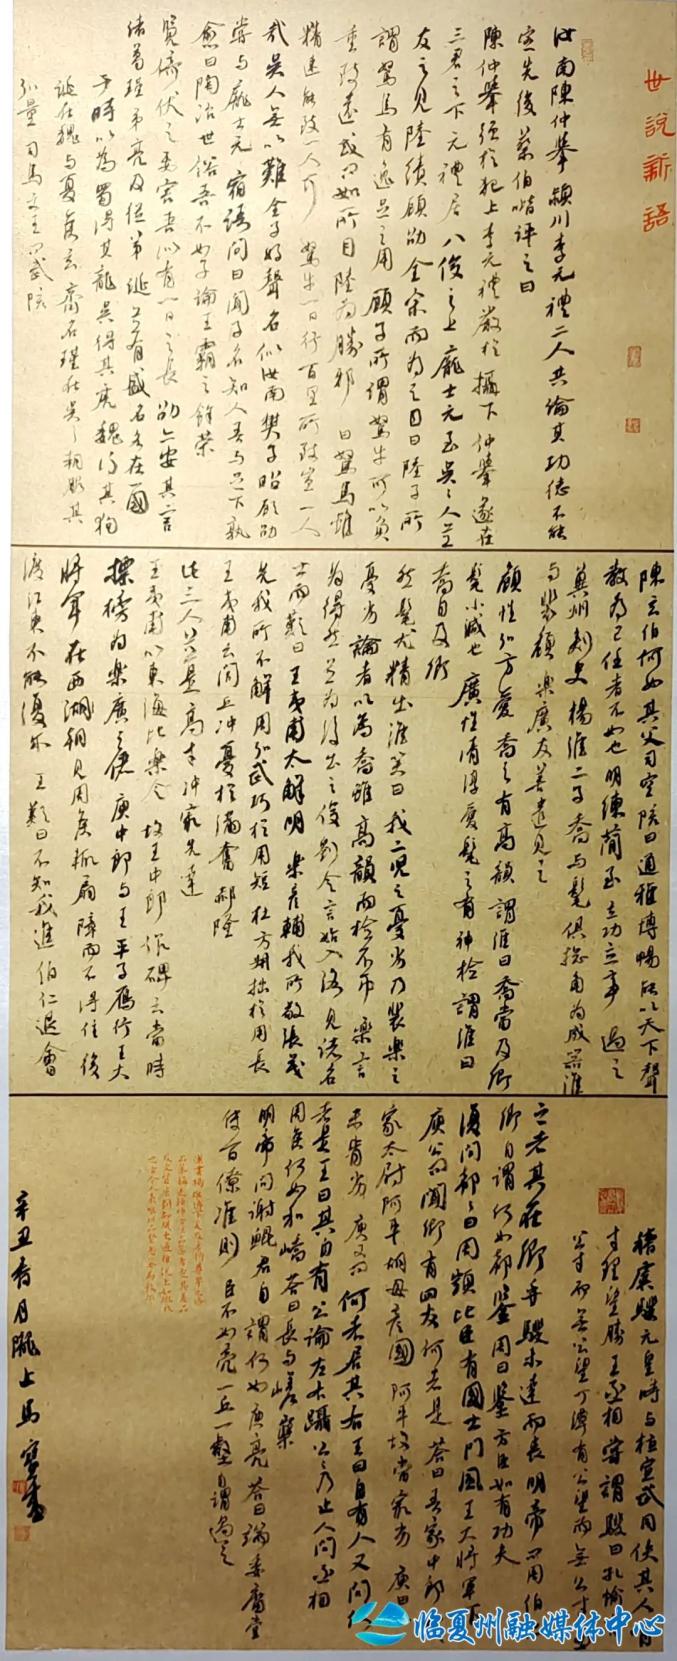 世說新語
汝南陳仲舉潁川李元禮二人共論其功德不能
定先後蔡伯喈評之曰
陳仲舉強於犯上李元禮嚴於攝下仲舉遂在
三君之下元禮居八俊之上龐士元至吳吳人並
友之見陸績顧劭全宗而為之目曰陸子所
謂駑馬有逸足之用顧子所謂駑牛可以負
重致遠或問如所目陸為勝邪曰駑馬雖
精速能致一人耳駑牛一日行百里所致豈一人
哉吳人無以難全子好聲名似汝南樊子昭顧劭
嘗與龐士元宿語問曰聞子名知人吾與足下孰
愈曰陶冶世俗吾不如子論王霸之餘策
覽倚伏之要害吾似有一日之長劭亦安其言
諸葛瑾弟亮及從弟誕並有盛名各在一國
于時以為蜀得其龍吳得其虎魏得其狗
誕在魏與夏侯玄齊名瑾在吳吳朝服其
弘量司馬文王問武陔
陳玄伯何如其父司空陔曰通雅博暢能以天下聲
教為己任者不如也明練簡至立功立事過之
冀州刺史楊淮二子喬與髦俱總角為成器淮
與裴頠樂廣友善遣見之
頠性弘方愛喬之有高韻謂淮曰喬當及卿
髦小減也廣性清淳愛髦之有神檢謂淮曰
喬自及卿
然髦尤精出淮笑曰我二兒之優劣乃裴樂之
優劣論者以為喬雖高韻而檢不帀樂言
為得然並為後出之俊劉令言始入洛見諸名
士而歎曰王夷甫太解明樂彥輔我所敬張茂
先我所不解周弘武巧於用短杜方叔拙於用長
王夷甫云閭丘沖優於滿奮郝隆
此三人並是高才沖最先達
王夷甫以東海比樂令故王中郎作碑云當時
標榜為樂廣之儷庾中郎與王平子雁行王大
將軍在西朝見周侯輒扇障面不得住後
渡江東不能復爾王歎曰不知我進伯仁退會
稽虞騑元皇時與桓宣武同俠其人有
才理望勝王丞相嘗謂騑曰孔愉
公才而無公望丁潭有公望而無公才
之者其在卿乎騑未達而喪明帝問周伯
仁卿自謂何如郗鑒周曰鑒方臣如有功夫
復問郗郗曰周顗比臣有國士門風王大將軍下
庾公問聞卿有四友何者是答曰君家中郎
家太尉阿平胡毋彥國阿平故當最劣庾曰
未肯劣庾又問何者居其右王曰自有人又問何
者是王曰其自有公論左右躡公公乃止人問丞相
周侯何如和嶠答曰長輿嵯櫱
明帝問謝鯤君自謂何如庾亮答曰端委廟堂
使百僚準則臣不如亮一丘一壑自謂過之
辛丑
月隴上馬
臨夏州融媒体中心